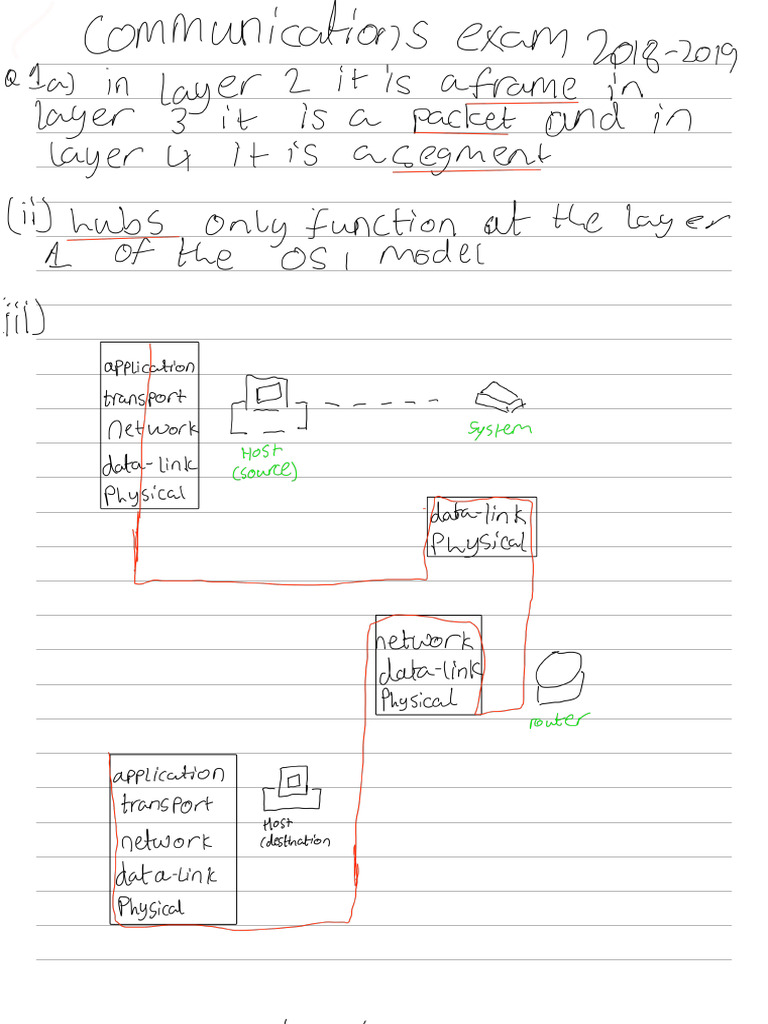 Communications exam 2018-2019
Q 1a) in layer 2 it is a frame in
layer 3 it is a packet and in
layer 4 it is a segment
(ii) hubs only function at the layer
1 of the OSI model
iii)
application
transport
network
data-link
Physical
Host
(source)
System
data-link
Physical
network
data-link
Physical
router
application
transport
network
data-link
Physical
Host
(destination